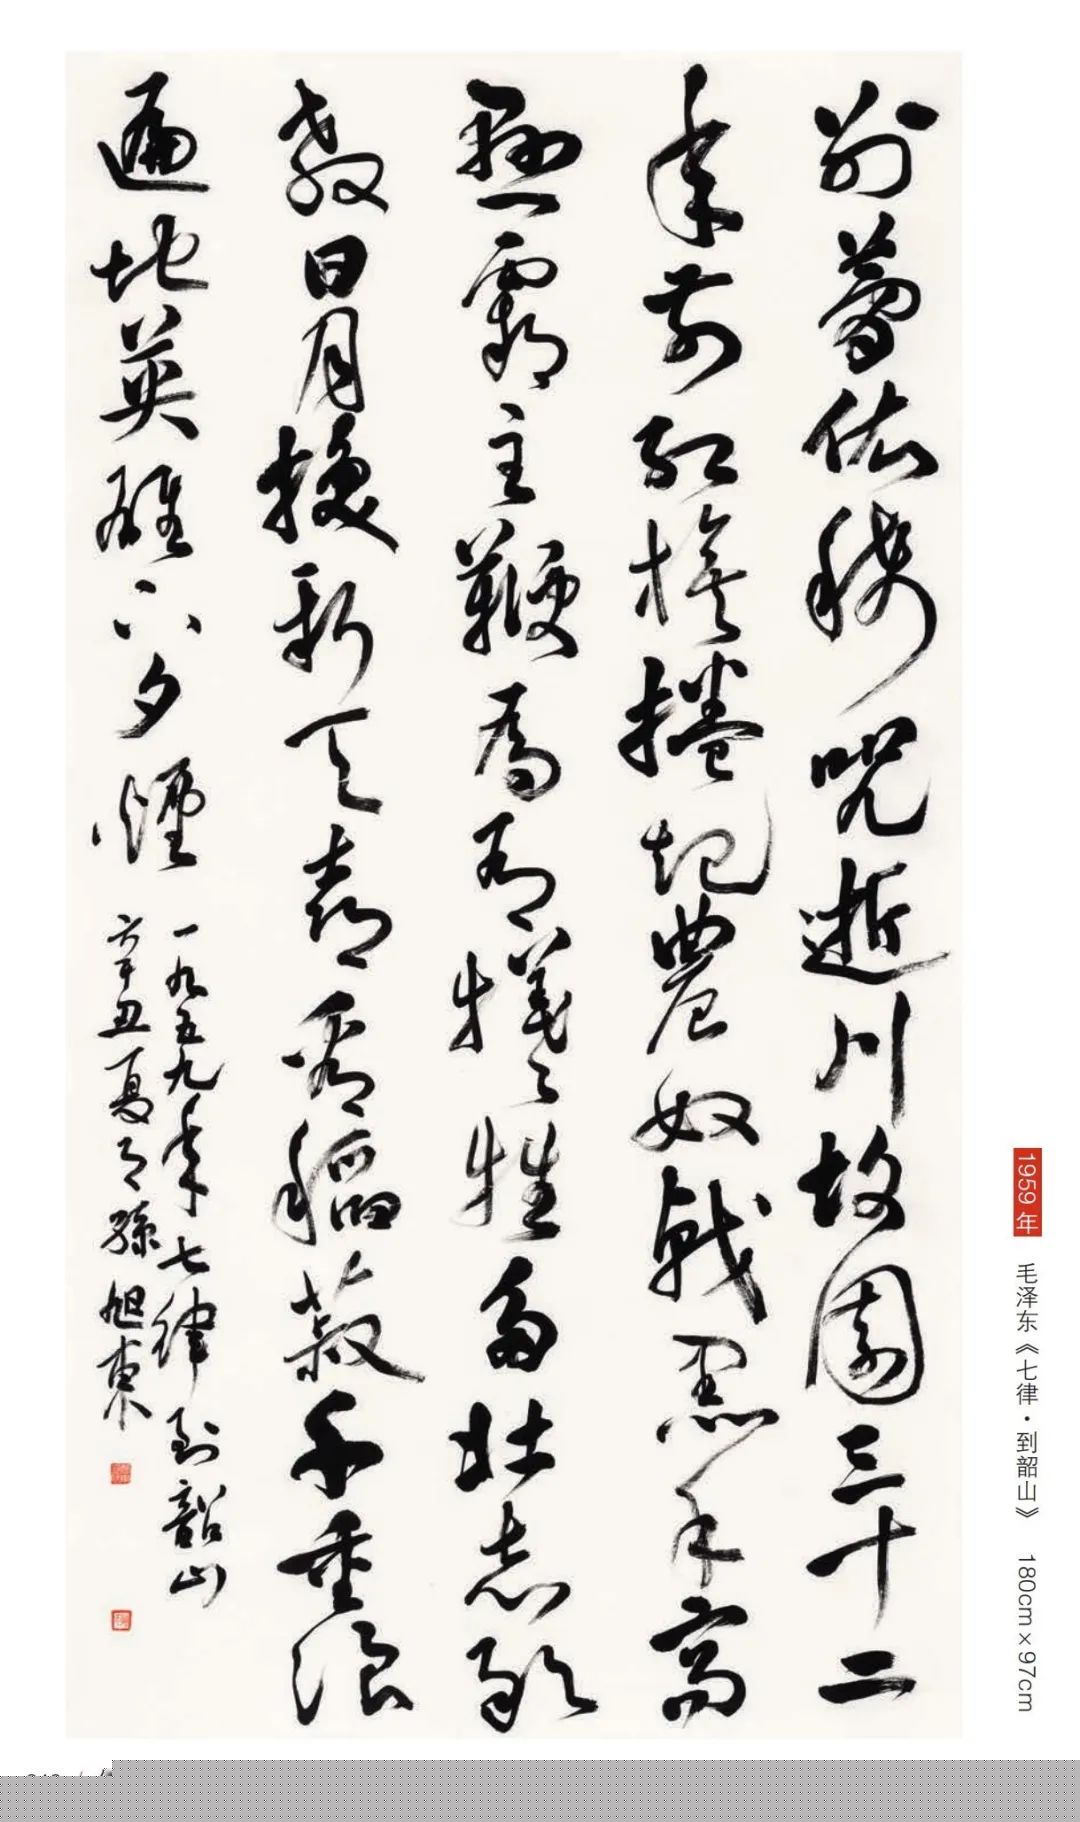 別夢依稀呪逝川故園三十二
年前紅旗捲起農奴戟黑手高
懸霸主鞭為有犧牲多壯志敢
教日月換新天喜看稻菽千重浪
遍地英雄下夕煙
一九五九年七律到韶山
辛丑夏月孫旭東
1959 年 毛泽东《七律·到韶山》 180cm×97cm